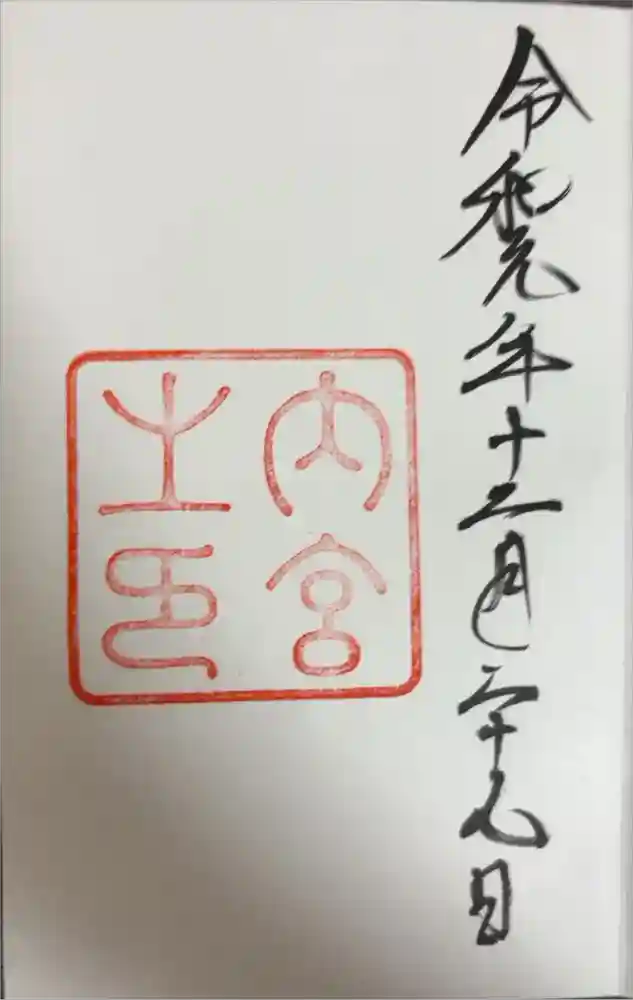 令和元年十二月二十九日
内宮
之印